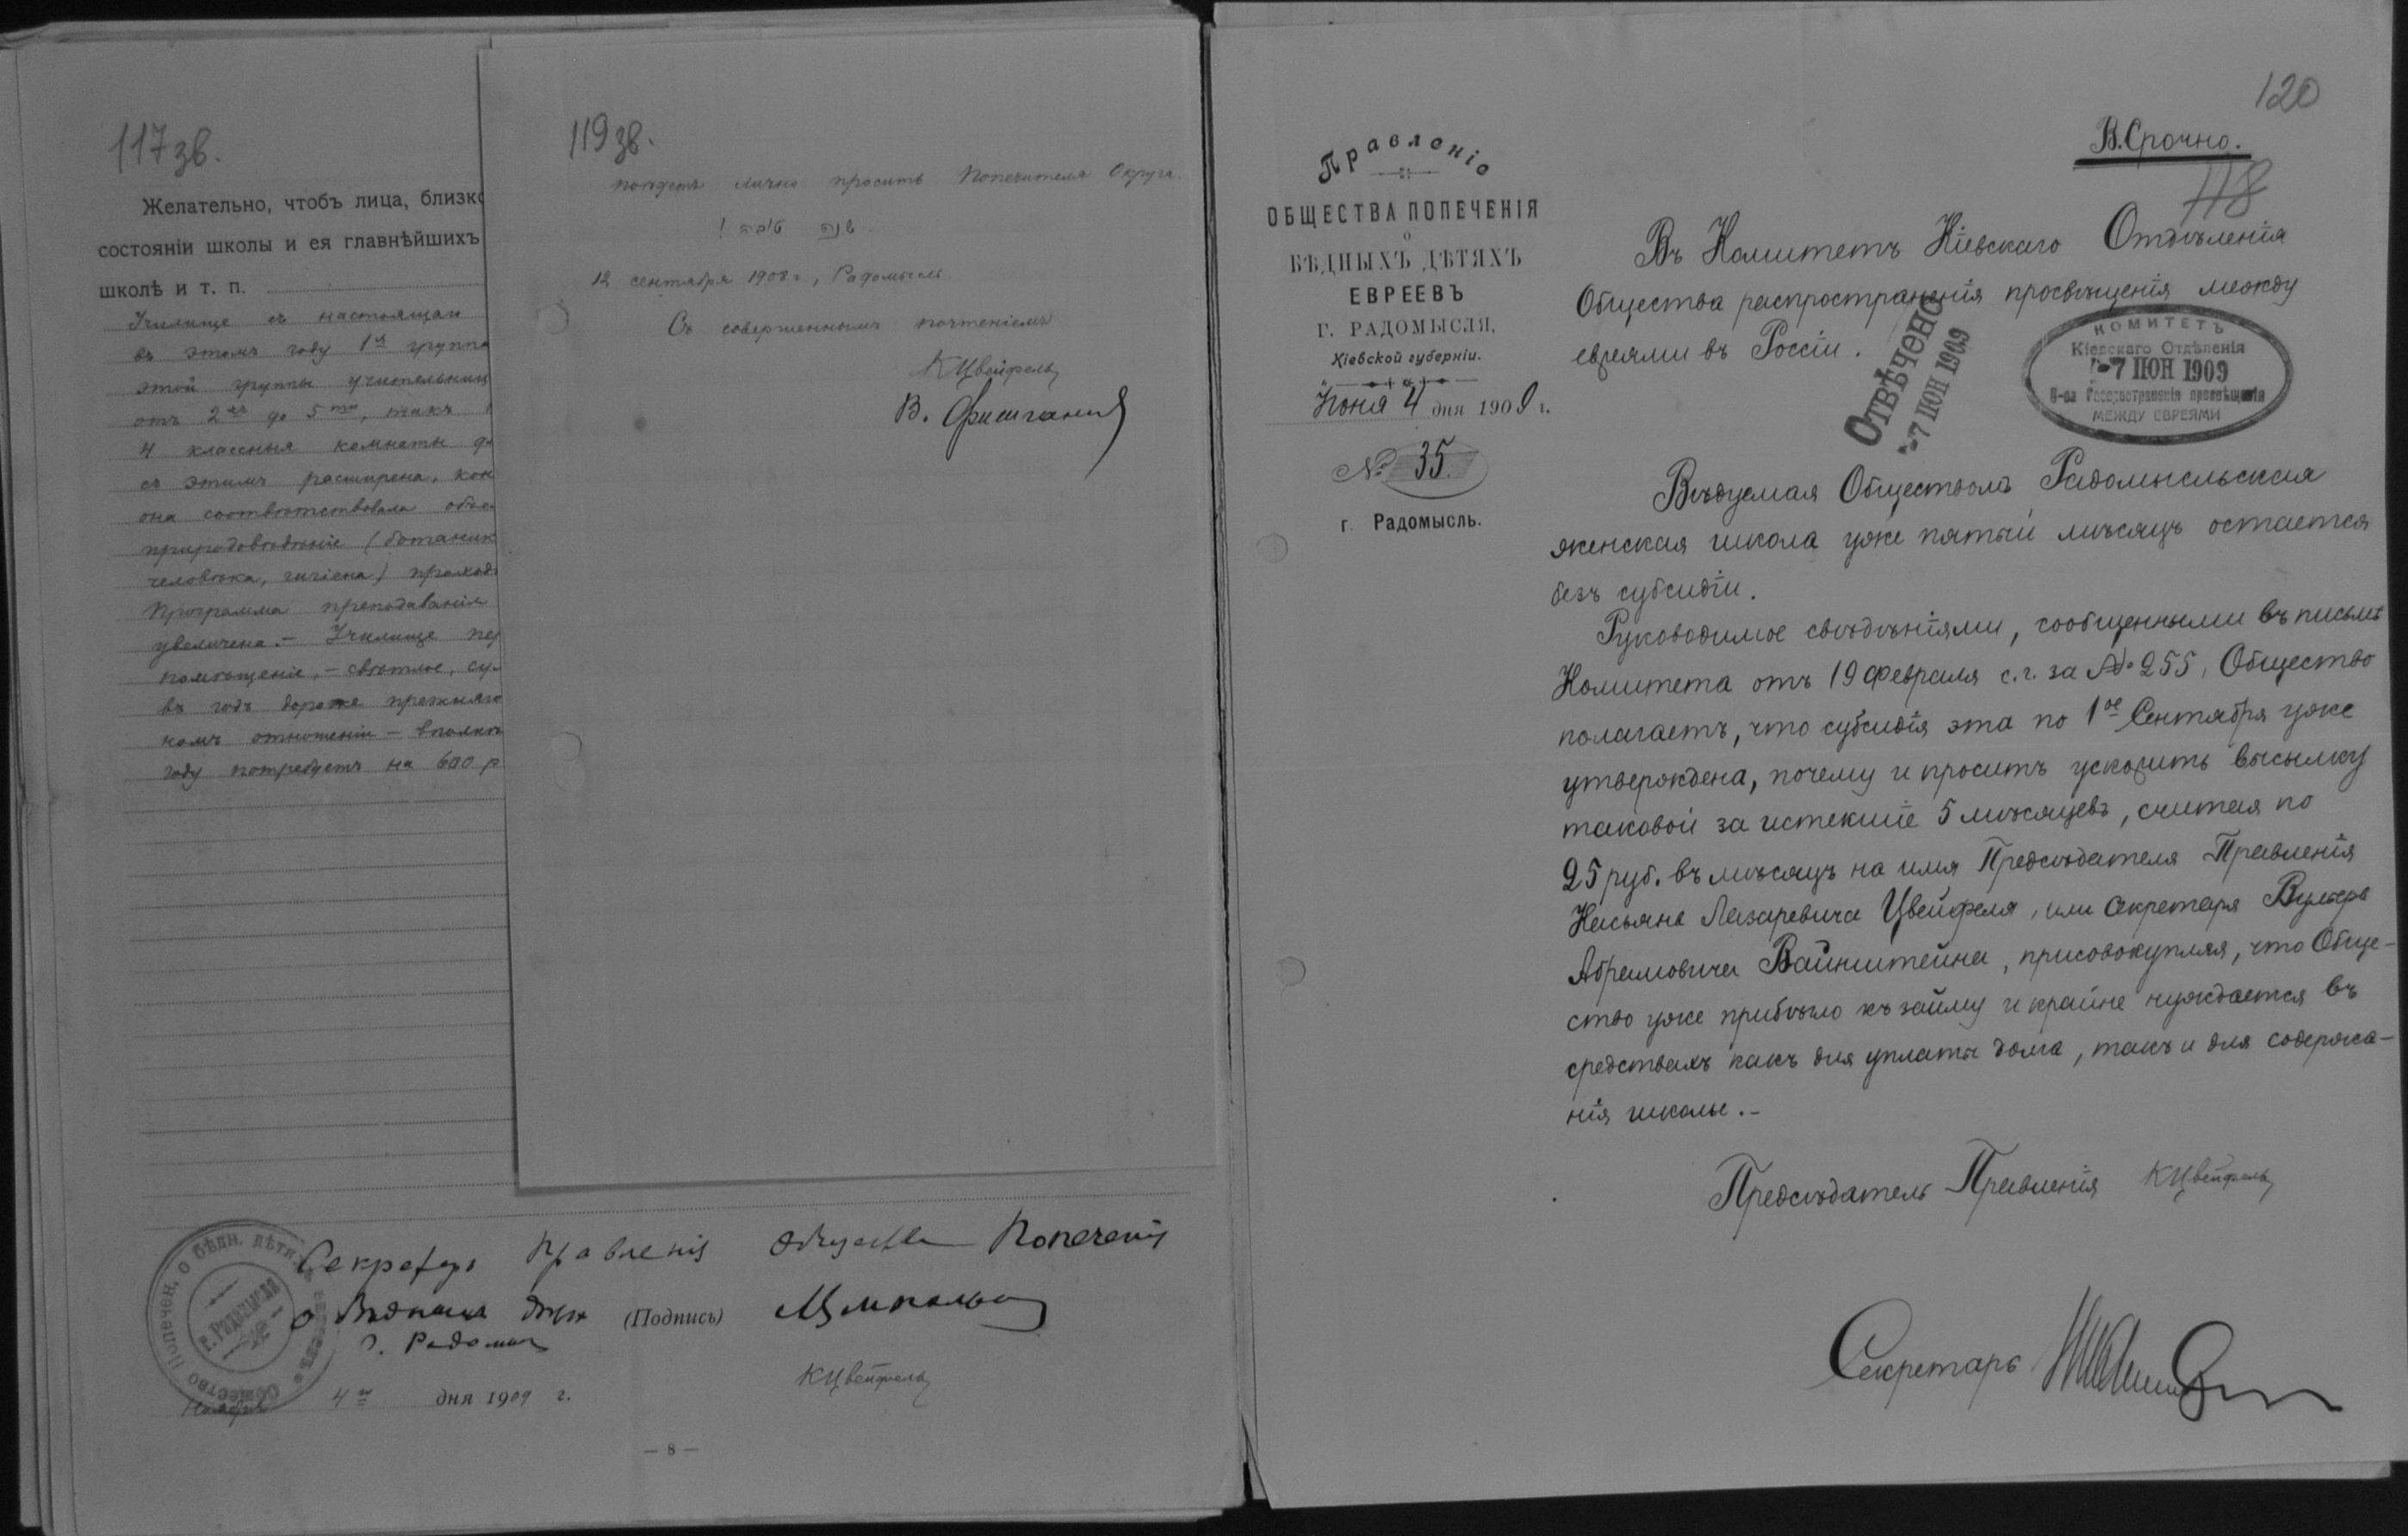 117 зв.
Желательно, чтобъ лица, близко
состояніи школы и ея главнѣйшихъ
школѣ и т. п.
Училище съ настоящаго
въ этомъ году 1й группа
этой группы учительниц
отъ 2хъ до 5ти, такъ
4 классныя комнаты дл
съ этимъ расширена, кон
она соотвѣтствовала объем
природовѣдѣніе (ботаник
человѣка, гигіена) проход
Программа преподаванія
увеличена. – Училище пер
помѣщеніе, – свѣтлое, сух
въ годъ дороже прежняго
номъ отношеніи – вполнѣ
году потребуетъ на 600 р
Секретарь Правленія Общества Попеченія
о бѣдныхъ дѣтях (Подпись)
г. Радомысл
КЦвейфель
Ноября 4го дня 1909 г.
— 8 —
119 зв.
поѣдетъ лично просить Попечителя Округа.
שנה טובה!
12 сентября 1908 г., Радомысль
Съ совершеннымъ почтеніемъ
КЦвейфель
В.
120
В. Срочно.
118
Правленіе
ОБЩЕСТВА ПОПЕЧЕНІЯ
О
БѢДНЫХЪ ДѢТЯХЪ
ЕВРЕЕВЪ
Г. РАДОМЫСЛЯ,
Кіевской губерніи.
Іюня 4 дня 1909 г.
№ 35.
г. Радомысль.
Въ Комитетъ Кіевскаго Отдѣленія
Общества распространенія просвѣщенія между
евреями въ Россіи.
ОТВѢЧЕНО
-7 ІЮН 1909
КОМИТЕТЪ
Кіевскаго Отдѣленія
-7 ІЮН 1909
О-ва Распространенія просвѣщенія
МЕЖДУ ЕВРЕЯМИ
Вѣдуемая Обществомъ Радомысльская
женская школа уже пятый мѣсяцъ остается
безъ субсидіи.
Руководимое свѣдѣніями, сообщенными въ письмѣ
Комитета отъ 19 Февраля с. г. за № 255, Общество
полагаетъ, что субсидія эта по 1ое Сентября уже
утверждена, почему и проситъ ускорить высылку
таковой за истекшіе 5 мѣсяцевъ, считая по
25 руб. въ мѣсяцъ на имя Предсѣдателя Правленія
Касьяна Лазаревича Цвейфеля, или Секретаря Вульфа
Абрамовича Вайнштейна, присовокупляя, что Обще-
ство уже прибѣгло къ займу и крайне нуждается въ
средствахъ какъ для уплаты долга, такъ и для содержа-
нія школы. –
Предсѣдатель Правленія КЦвейфель
Секретарь